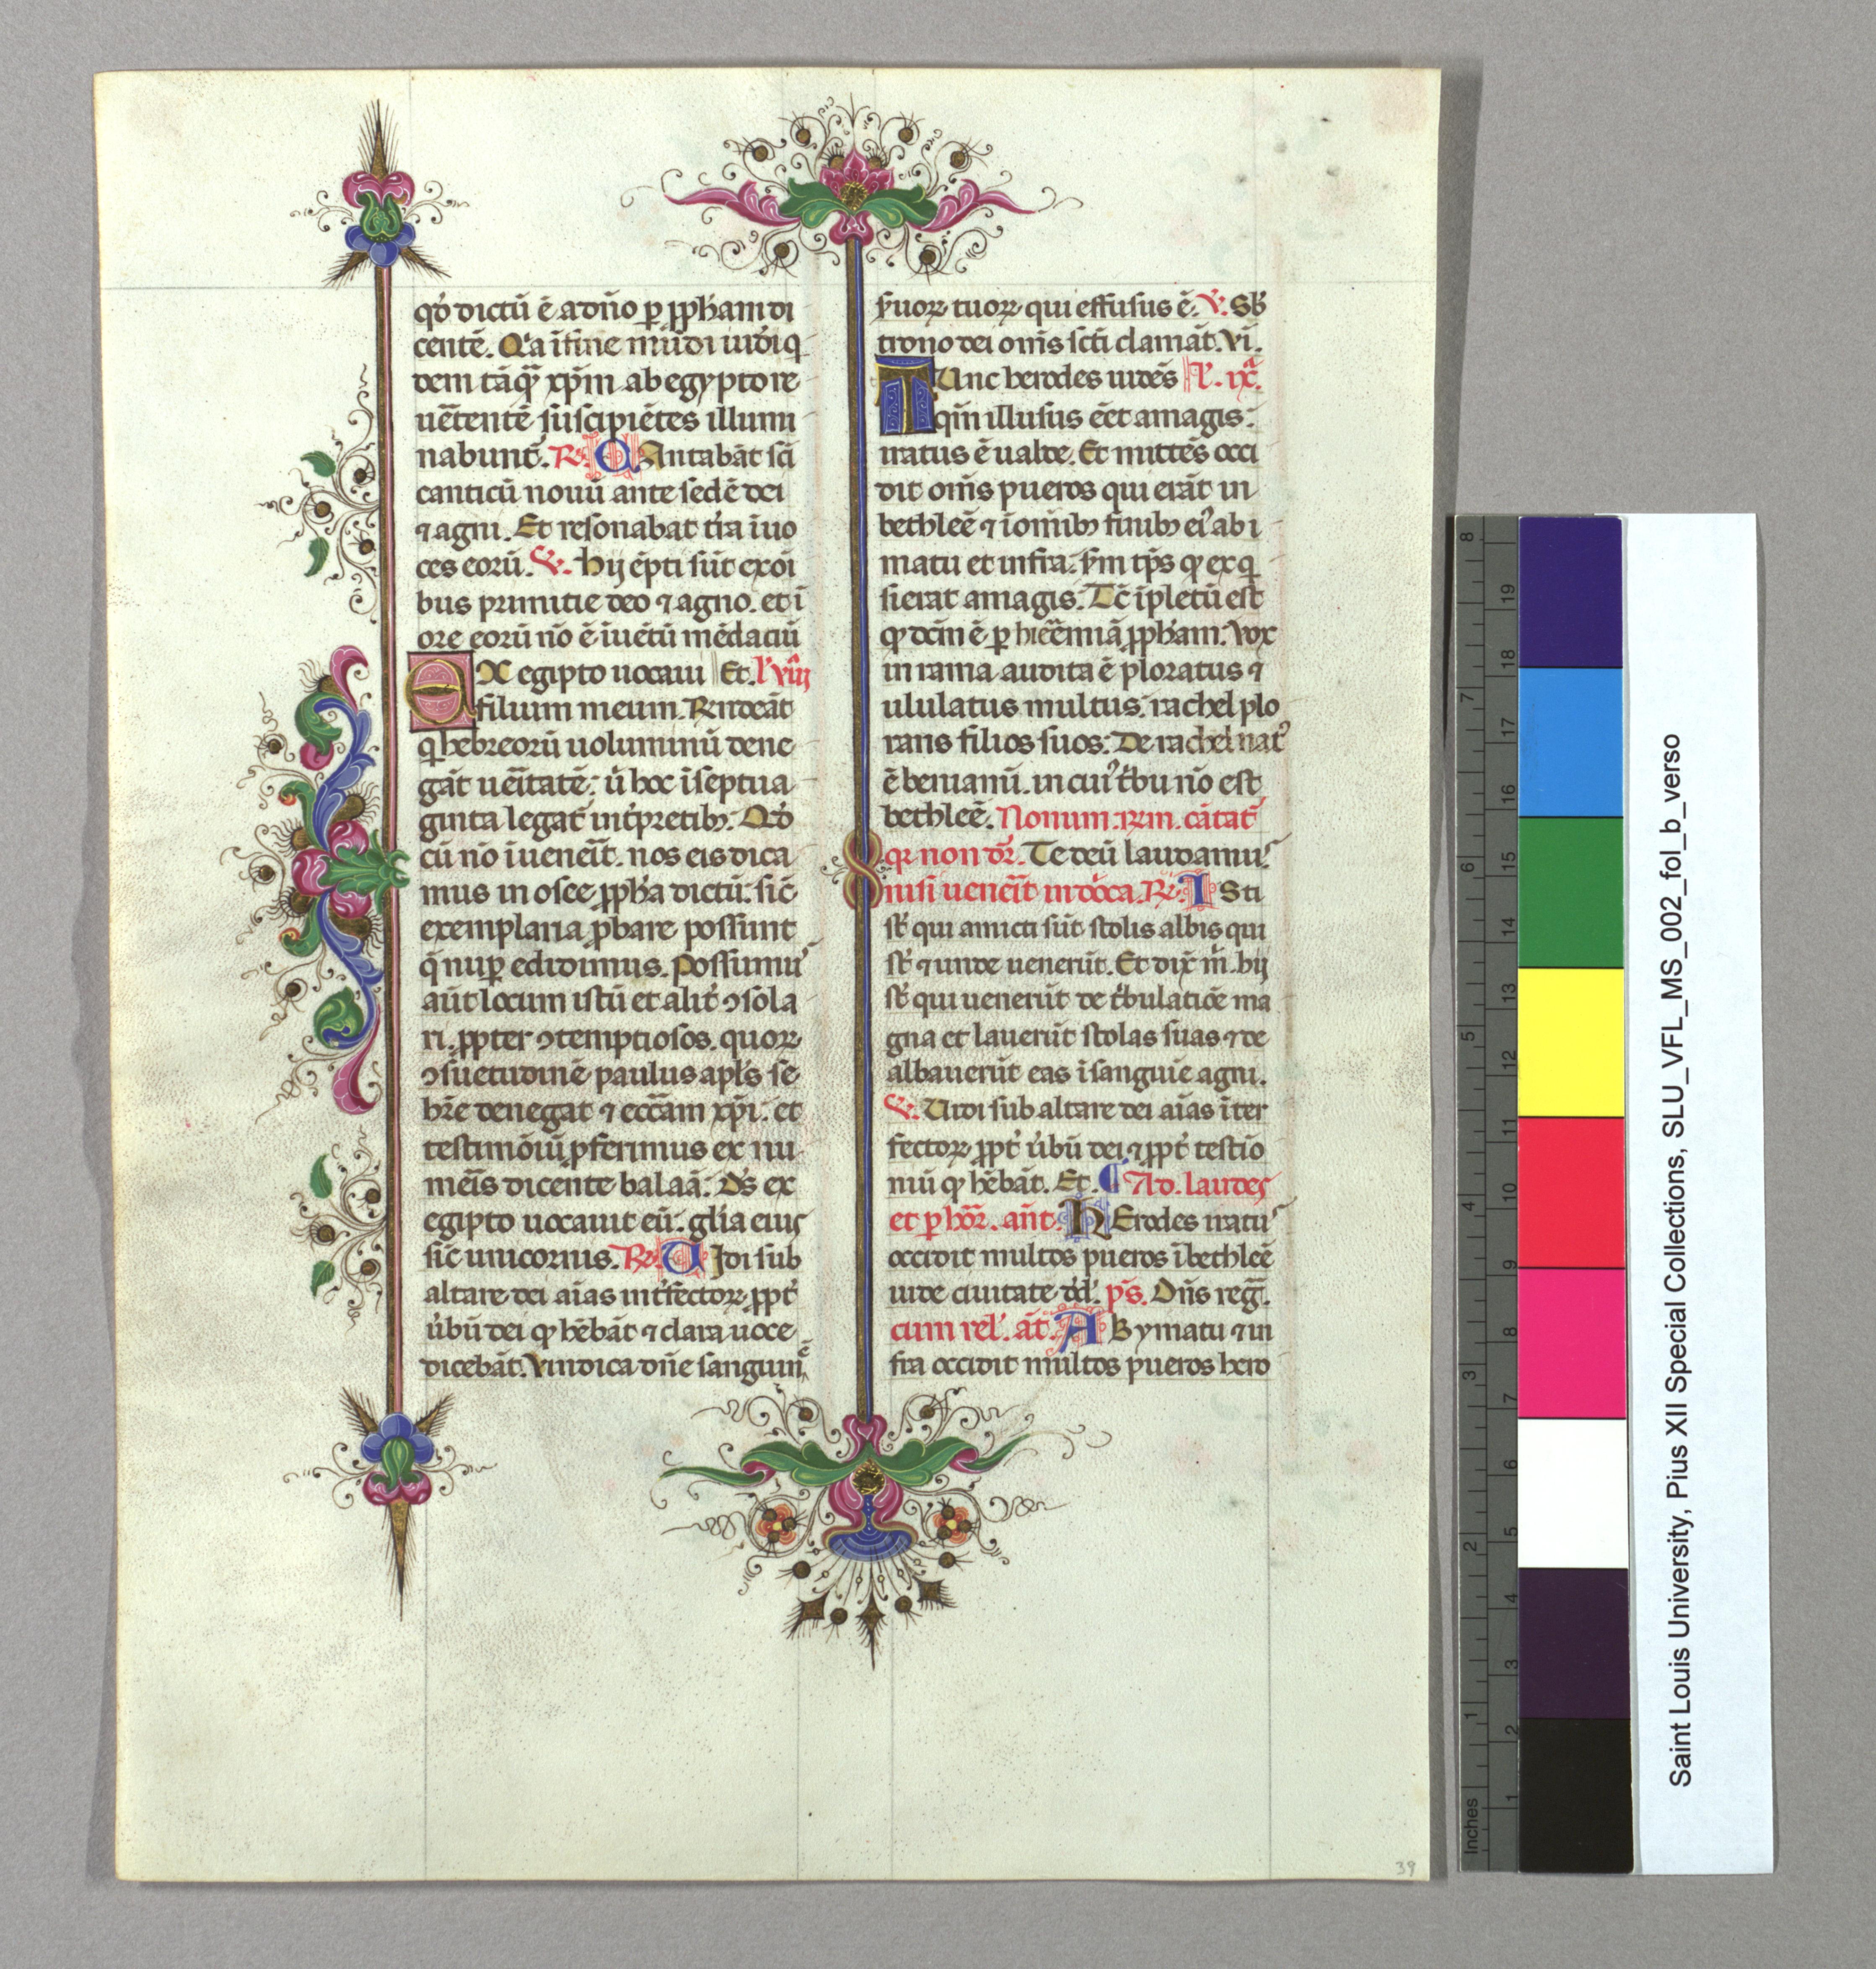 qđ dictū ē a dño ꝑ ꝓpħam di
centē. Q'a ī fine mūdi iudiq
dem tāq̄ȝ xp̄m ab egypto re
uētentē suscipiētes illumi
nabunt̄. R̄. CAntabāt sc̄i
canticū nouū ante sedē dei
⁊ agni. Et resonabat t'ra ī uo
ces eorū. V̄. hij ēpti sūt ex oī
bus primitie deo ⁊ agno. et ī
ore eorū nō ē īuētū mēdaciū
EX egipto uocaui Et. l' viij
filium meum. Rn̄deāt
q̄ hebreorū uoluminū dene
gāt ueītatē: ū hoc ī septua
ginta legat̄ int'p̄retibȝ: Qđ
cū nō īueneīt. nos eis dica
mus in osee ꝓpħa dictū: sic̄
exemplaria ꝓbare possunt
q̄ nuꝑ edidimus. Possumu'
aūt locum istū et alit' ꝯsola
ri. ꝓpter ꝯtemptiosos. quoꝝ
ꝯsuetudinē paulus apl's se
hr̄e denegat ⁊ ecc̄am xp̄i. et
testimōiū ꝓferimus ex nu
meīs dicente balaā: Ds̄ ex
egipto uocauit eū. gl'ia eius
sic̄ unicornis. R̄. UIdi sub
altare dei aīas int'fectoꝝ ꝓpt'
ūbū dei qđ hēbāt ⁊ clara uoce
dicebāt. Vindica dñe sanguinē
ŝuoꝝ tuoꝝ qui effusus ē. V̄. Sb̄
trono dei om̄s sc̄ti clamāt. vi.
TUnc herodes uidēs l'. ix̄ᵃ.
qm̄ illusus eēt a magis:
iratus ē ualde. Et mittēs occi
dit om̄s pueros qui erāt in
bethleē ⁊ ī om̄ibȝ finibȝ ei' a bi
matu et infra: s̄m tp̄s qđ exq̄
sierat a magis. Tc̄ īpletū est
qđ dc̄m ē ꝑ hieēmiā ꝓpħam: Vox
in rama audita ē ploratus ⁊
ululatus multus: rachel plo
rans filios suos: De rachel nat'
ē beniamī. in cui' t'bu nō est
bethleē. Nonum. r̄m. cātat̄
q̄ non dr̄. Te deū laudamu'
nisi ueneīt in dōca. R̄. ISti
st̄ qui amicti sūt stolis albis qui
st̄ ⁊ unde uenerūt. Et dix̄ m̄. hij
st̄ qui uenerūt de t'bulatiōe ma
gna et lauerūt stolas suas ⁊ de
albauerūt eas ī sanguīe agni.
V̄. Uidi sub altare dei aīas īter
fectoꝝ ꝓpt' ūbū dei ⁊ ꝓpt' testīo
niū qđ hēbāt. Et. ¶ Ad. laudes
et ꝑ hōr. ānt. HErodes iratu'
occidit multos pueros ī bethleē
iude ciuitate dd̄. ps̄. Dn̄s reḡ.
cum rel'. āt. A Bymatu ⁊ in
fra occidit multos pueros hero
39
Saint Louis University, Pius XII Special Collections, SLU_VFL_MS_002_fol_b_verso
Inches 1 2 3 4 5 6 7 8
1 2 3 4 5 6 7 8 9 10 11 12 13 14 15 16 17 18 19